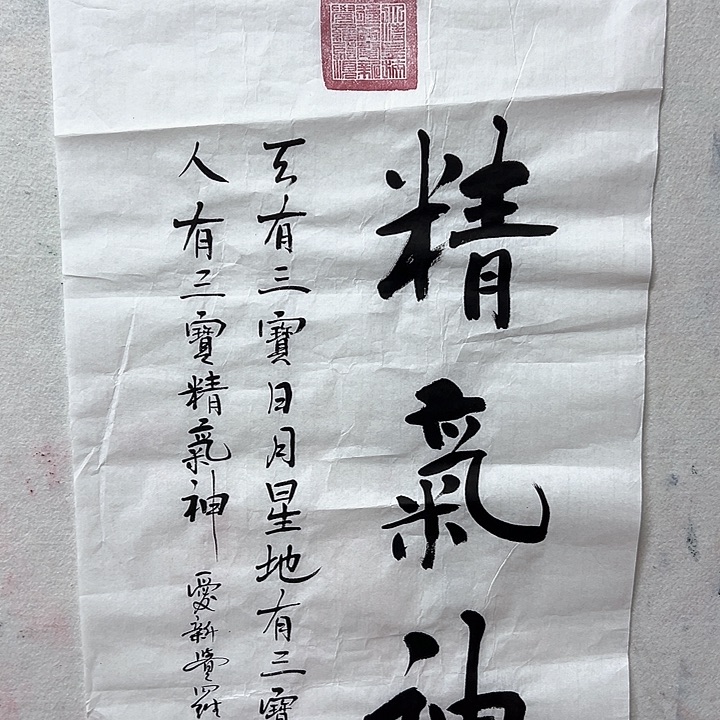 精氣神
天有三寶日月星地有三寶
人有三寶精氣神
愛新覺羅